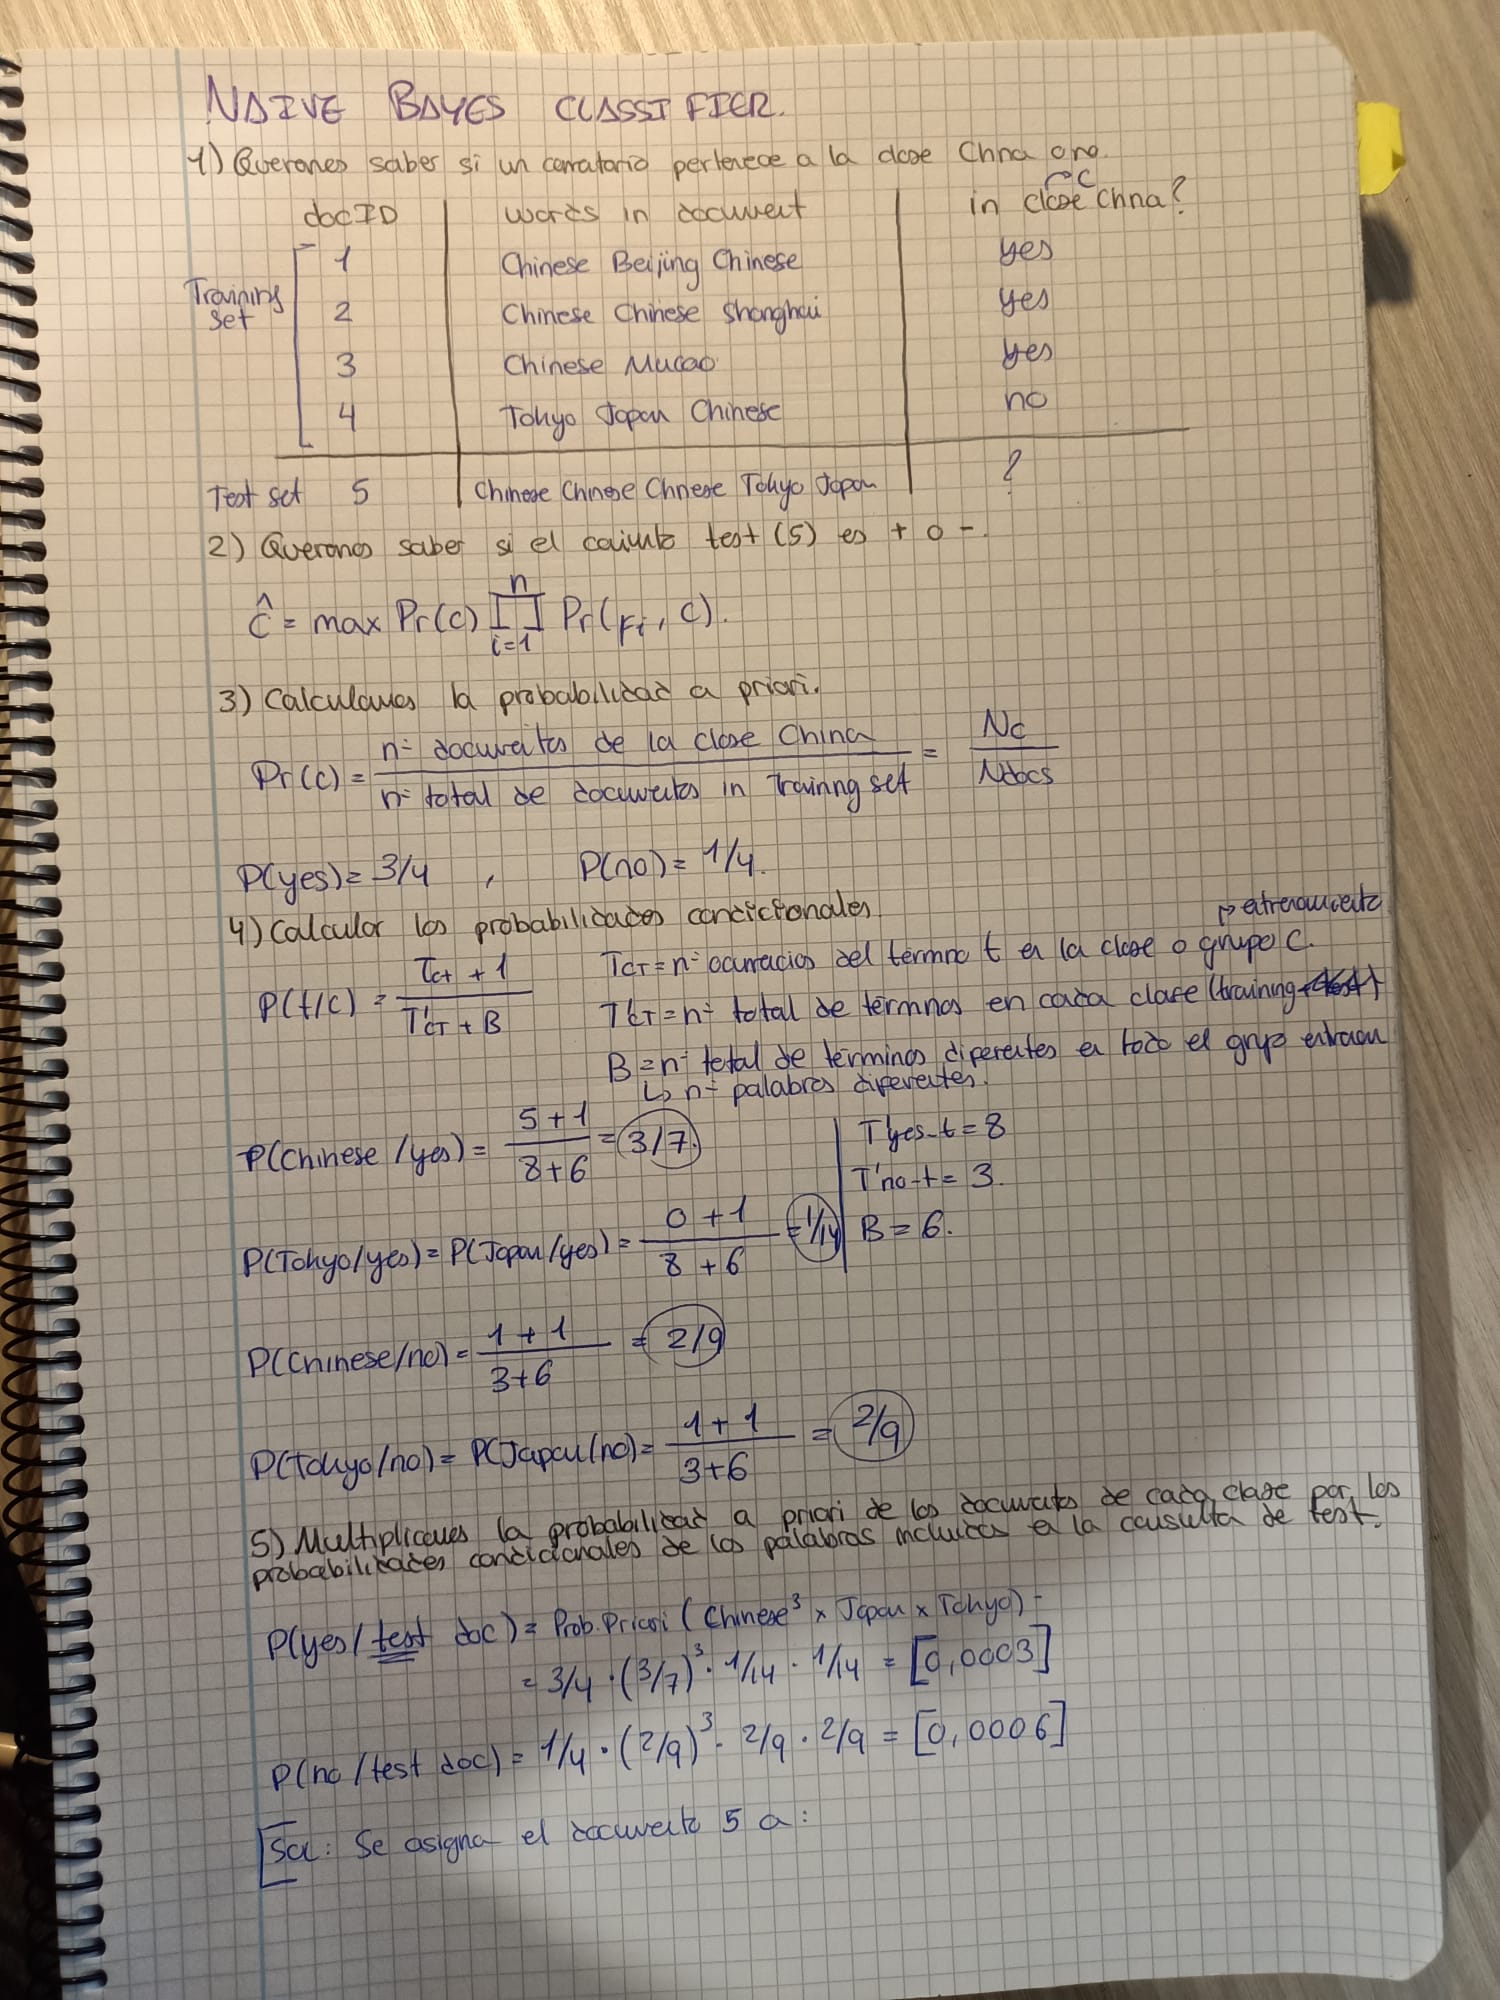 NAIVE BAYES CLASSIFIER.
1) Queremos saber si un comentario pertenece a la clase China o no.
docID words in document in clase China? → C
Training set
1 Chinese Beijing Chinese yes
2 Chinese Chinese Shanghai yes
3 Chinese Macao yes
4 Tokyo Japan Chinese no
Test set 5 Chinese Chinese Chinese Tokyo Japan ?
2) Queremos saber si el conjunto test (5) es + o -.
Ĉ = max Pr(c) ∏ i=1 n Pr(Fi, C).
3) Calculamos la probabilidad a priori.
Pr(c) = nº documentos de la clase China / nº total de documentos in Training set = Nc / Ndocs
P(yes) = 3/4 , P(no) = 1/4.
4) Calcular las probabilidades condicionales. → entrenamiento
P(t/c) = Tct + 1 / T'ct + B
TCT = nº ocurrencias del término t en la clase o grupo C.
T'CT = nº total de términos en cada clase (training + test)
B = nº total de términos diferentes en todo el grupo entrenam
↳ nº palabras diferentes.
P(Chinese/yes) = 5+1 / 8+6 = 3/7.
T'yes-t = 8
T'no-t = 3.
B = 6.
P(Tokyo/yes) = P(Japan/yes) = 0+1 / 8+6 = 1/14
P(Chinese/no) = 1+1 / 3+6 = 2/9
P(Tokyo/no) = P(Japan/no) = 1+1 / 3+6 = 2/9
5) Multiplicamos la probabilidad a priori de los documentos de cada clase por las
probabilidades condicionales de las palabras incluidas en la consulta de test.
P(yes/test doc) = Prob. Priori (Chinese³ x Japan x Tokyo) =
= 3/4 · (3/7)³ · 1/14 · 1/14 = [0,0003]
P(no/test doc) = 1/4 · (2/9)³ · 2/9 · 2/9 = [0,0006]
Sol: Se asigna el documento 5 a: